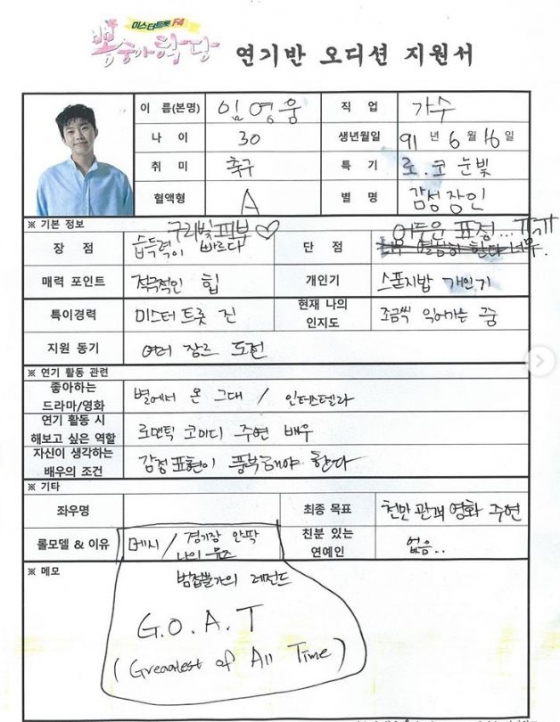 미스터트롯 F4
뽕숭아학당 연기반 오디션 지원서
이 름(본명) 임영웅 직 업 가수
나 이 30 생년월일 91 년 6 월 16 일
취 미 축구 특 기 로.코 눈빛
혈액형 A 별 명 감성장인
※ 기본 정보
구리빛피부♡
장 점 습득력이 빠르다 단 점 어두운 표정...
매력 포인트 적극적인 힙 개인기 스폰지밥 개인기
특이경력 미스터트롯 진 현재 나의 인지도 조금씩 익어가는 중
지원 동기 여러 장르 도전
※ 연기 활동 관련
좋아하는 드라마/영화 별에서 온 그대 / 인터스텔라
연기 활동 시 해보고 싶은 역할 로맨틱 코미디 주연 배우
자신이 생각하는 배우의 조건 감정표현이 풍부해야 한다
※ 기타
좌우명 최종 목표 천만관객영화 주연
롤모델 & 이유 메시 / 경기장 안팎 친분 있는 연예인 없음..
※ 메모
범접불가의 레전드
G.O.A.T
(Greatest of All Time)